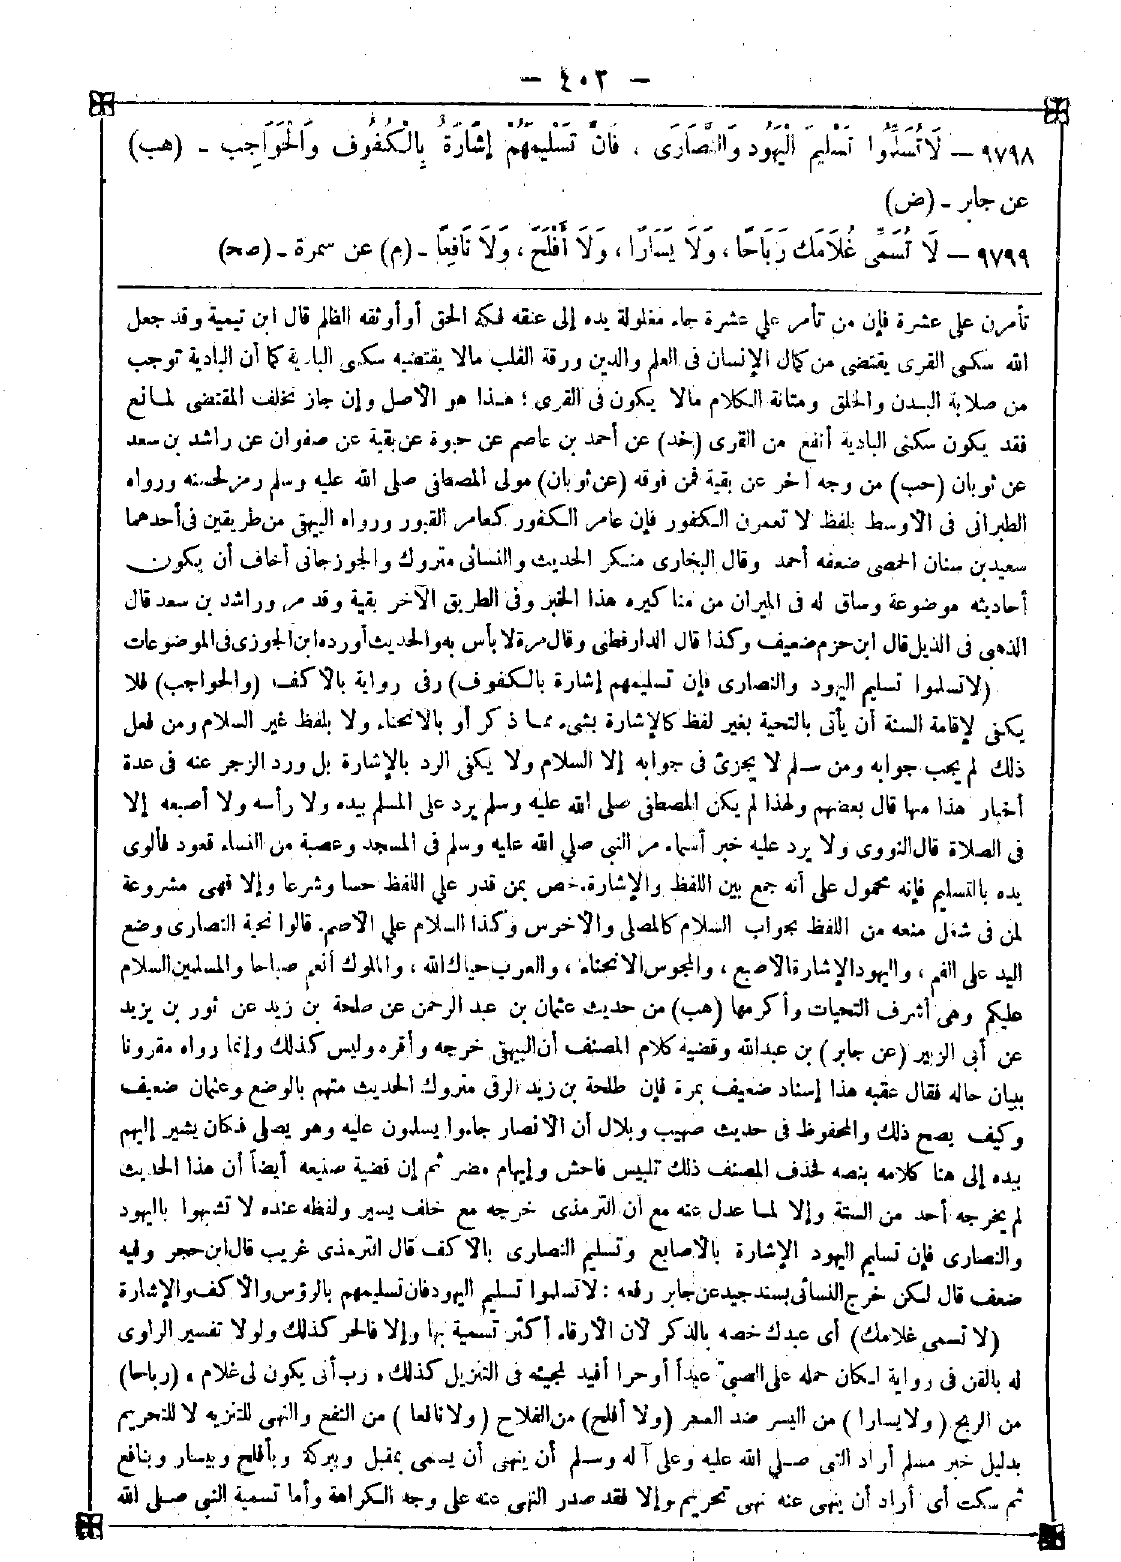 — ٤٠٣ —
٩٧٩٨ — لَا تُسَلِّمُوا تَسْلِيمَ الْيَهُودِ وَالنَّصَارَى ، فَإِنَّ تَسْلِيمَهُمْ إِشَارَةٌ بِالْكُفُوفِ وَالْحَوَاجِبِ - (هب)
عن جابر - (ض)
٩٧٩٩ — لَا تُسَمِّى غُلَامَكَ رَبَاحًا ، وَلَا يَسَارًا ، وَلَا أَفْلَحَ ، وَلَا نَافِعًا - (م) عن سمرة - (صح)
تأمرن على عشرة فإن من تأمر على عشرة جاء مغلولة يده إلى عنقه فكه الحق أو أوثقه الظلم قال ابن تيمية وقد جعل
الله سكنى القرى يقتضى من كمال الإنسان فى العلم والدين ورقة القلب مالا يقتضيه سكنى البادية كما أن البادية توجب
من صلابة البدن والخلق ومتانة الكلام مالا يكون فى القرى ؛ هذا هو الأصل وإن جاز تخلف المقتضى لمانع
فقد يكون سكنى البادية أنفع من القرى (خد) عن أحمد بن عاصم عن حيوة عن بقية عن صفوان عن راشد بن سعد
عن ثوبان (حب) من وجه آخر عن بقية فمن فوقه (عن ثوبان) مولى المصطفى صلى الله عليه وسلم رمز لحسنه ورواه
الطبرانى فى الأوسط بلفظ لا تعمرن الكفور فإن عامر الكفور كعامر القبور ورواه البيهقى من طريقين فى أحدهما
سعيد بن سنان الحمصى ضعفه أحمد وقال البخارى منكر الحديث والنسائى متروك والجوزجانى أخاف أن يكون
أحاديثه موضوعة وساق له فى الميزان من مناكيره هذا الخبر وفى الطريق الآخر بقية وقد مر وراشد بن سعد قال
الذهبى فى الذيل قال ابن حزم ضعيف وكذا قال الدارقطنى وقال مرة لا بأس به والحديث أورده ابن الجوزى فى الموضوعات
(لا تسلموا تسليم اليهود والنصارى فإن تسليمهم إشارة بالكفوف) وفى رواية بالأكف (والحواجب) فلا
يكفى لإقامة السنة أن يأتى بالتحية بغير لفظ كالإشارة بشىء مما ذكر أو بالانحناء ولا بلفظ غير السلام ومن فعل
ذلك لم يجب جوابه ومن سلم لا يجزئ فى جوابه إلا السلام ولا يكفى الرد بالإشارة بل ورد الزجر عنه فى عدة
أخبار هذا منها قال بعضهم ولهذا لم يكن المصطفى صلى الله عليه وسلم يرد على المسلم بيده ولا رأسه ولا أصبعه إلا
فى الصلاة قال النووى ولا يرد عليه خبر أسماء مر النبى صلى الله عليه وسلم فى المسجد وعصبة من النساء قعود فألوى
يده بالتسليم فإنه محمول على أنه جمع بين اللفظ والإشارة، خص بمن قدر على اللفظ حسا وشرعا وإلا فهى مشروعة
لمن فى شغل منعه من اللفظ بجواب السلام كالمصلى والأخرس وكذا السلام على الأصم. قالوا تحية النصارى وضع
اليد على الفم ، واليهود الإشارة بالأصبع ، والمجوس الانحناء ، والعرب حياك الله ، والملوك أنعم صباحا والمسلمين السلام
عليكم وهى أشرف التحيات وأكرمها (هب) من حديث عثمان بن عبد الرحمن عن طلحة بن زيد عن ثور بن يزيد
عن أبى الزبير (عن جابر) بن عبدالله وقضية كلام المصنف أن البيهقى خرجه وأقره وليس كذلك وإنما رواه مقرونا
ببيان حاله فقال عقبه هذا إسناد ضعيف بمرة فإن طلحة بن زيد الرقى متروك الحديث متهم بالوضع وعثمان ضعيف
وكيف يصح ذلك والمحفوظ فى حديث صهيب وبلال أن الأنصار جاءوا يسلمون عليه وهو يصلى فكان يشير إليهم
بيده إلى هنا كلامه بنصه فحذف المصنف ذلك تلبيس فاحش وإيهام مضر ثم إن قضية صنيعه أيضاً أن هذا الحديث
لم يخرجه أحد من الستة وإلا لما عدل عنه مع أن الترمذى خرجه مع خلف يسير ولفظه عنده لا تشبهوا باليهود
والنصارى فإن تسليم اليهود الإشارة بالأصابع وتسليم النصارى بالأكف قال الترمذى غريب قال ابن حجر وفيه
ضعف قال لكن خرج النسائى بسند جيد عن جابر رفعه : لا تسلموا تسليم اليهود فان تسليمهم بالرؤس والأكف والإشارة
(لا تسمى غلامك) أى عبدك خصه بالذكر لأن الأرقاء أكثر تسمية بها وإلا فالحر كذلك ولولا تفسير الراوى
له بالقن فى رواية لكان حمله على الصبى عبداً أو حرا أفيد لمجيئه فى التنزيل كذلك، رب أنى يكون لى غلام، (رباحا)
من الربح (ولا يسارا) من اليسر ضد العسر (ولا أفلح) من الفلاح (ولا نافعا) من النفع والنهى للتنزيه لا للتحريم
بدليل خبر مسلم أراد النبى صلى الله عليه وعلى آله وسلم أن ينهى أن يسمى بمقبل وببركة وبأفلح وبيسار وبنافع
ثم سكت أى أراد أن ينهى عنه نهى تحريم وإلا فقد صدر النهى عنه على وجه الكراهة وأما تسمية النبى صلى الله